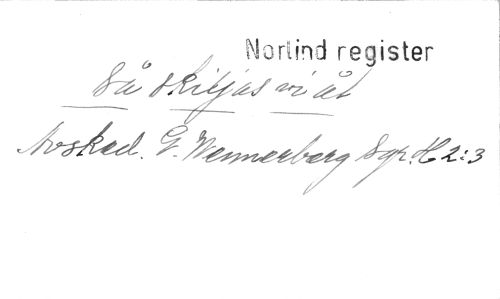 Norlind register
Så skiljas vi åt
Avsked. G. Wennerberg Sgr. H 2:3